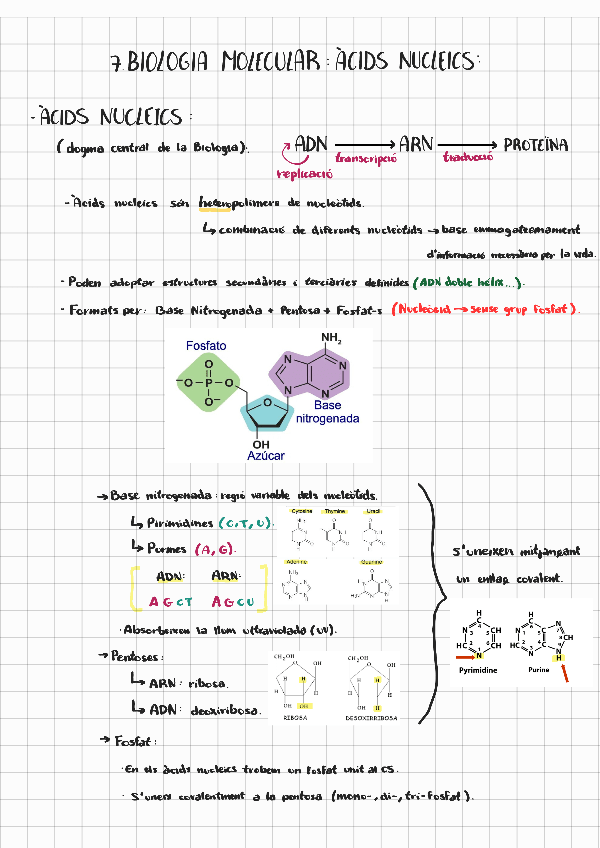 7. BIOLOGIA MOLECULAR: ÀCIDS NUCLEICS:
- ÀCIDS NUCLEICS:
(dogma central de la Biologia): ADN → ARN → PROTEÏNA
transcripció traducció
replicació
- Àcids nucleics són heteropolímers de nucleòtids.
↳ combinació de diferents nucleòtids → base emmagatzemament
d'informació necessària per la vida.
- Poden adoptar estructures secundàries i terciàries definides (ADN doble hèlix...).
- Formats per: Base Nitrogenada + Pentosa + Fosfat-s (Nucleòsid → sense grup fosfat).
Fosfato
NH₂
N N
O
⁻O-P-O O N N
O⁻ Base
nitrogenada
OH
Azúcar
→ Base nitrogenada: regió variable dels nucleòtids.
↳ Pirimidines (C,T,U).
↳ Purines (A,G).
ADN: ARN:
AGCT AGCU
Cytosine Thymine Uracil
Adenine Guanine
· Absorbeixen la llum ultraviolada (UV).
S'uneixen mitjançant
un enllaç covalent.
Pyrimidine Purine
→ Pentoses:
↳ ARN: ribosa.
↳ ADN: deoxiribosa.
CH₂OH O OH CH₂OH O OH
H H H H
OH OH OH H
RIBOSA DESOXIRRIBOSA
→ Fosfat:
· En els àcids nucleics trobem un fosfat unit al C5.
· S'uneix covalentment a la pentosa (mono-, di-, tri-fosfat).